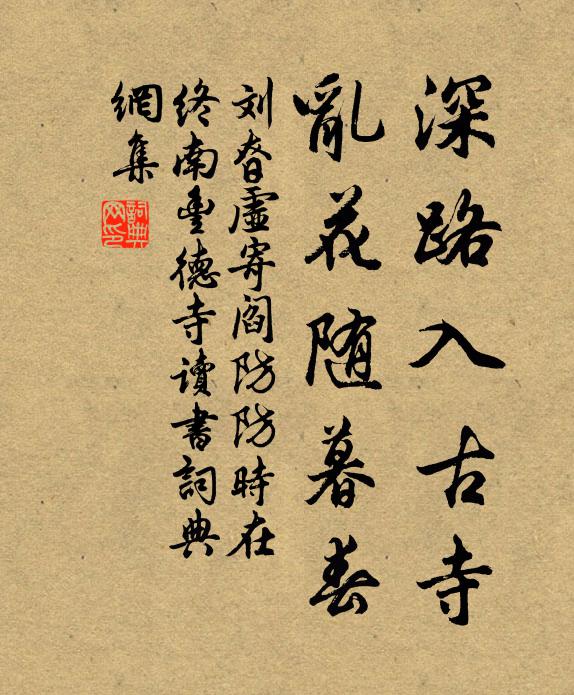 深路入古寺
亂花随暮春
刘眘虛寄阎防防時在
终南豐德寺讀書詞典
網集
詞典網印